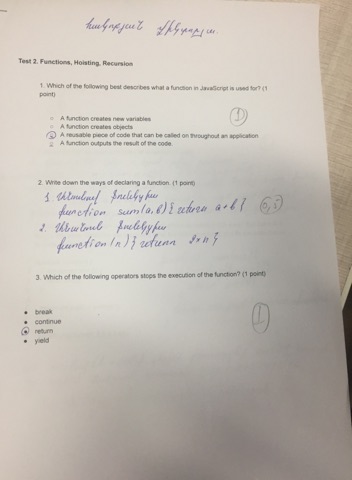 Test 2. Functions, Hoisting, Recursion
1. Which of the following best describes what a function in JavaScript is used for? (1
point)
A function creates new variables
A function creates objects
A reusable piece of code that can be called on throughout an application
A function outputs the result of the code.
1
2. Write down the ways of declaring a function. (1 point)
1.
function sum(a, b) { return a+b }
0,5
2.
function (n) { return 2*n }
3. Which of the following operators stops the execution of the function? (1 point)
break
continue
return
yield
1